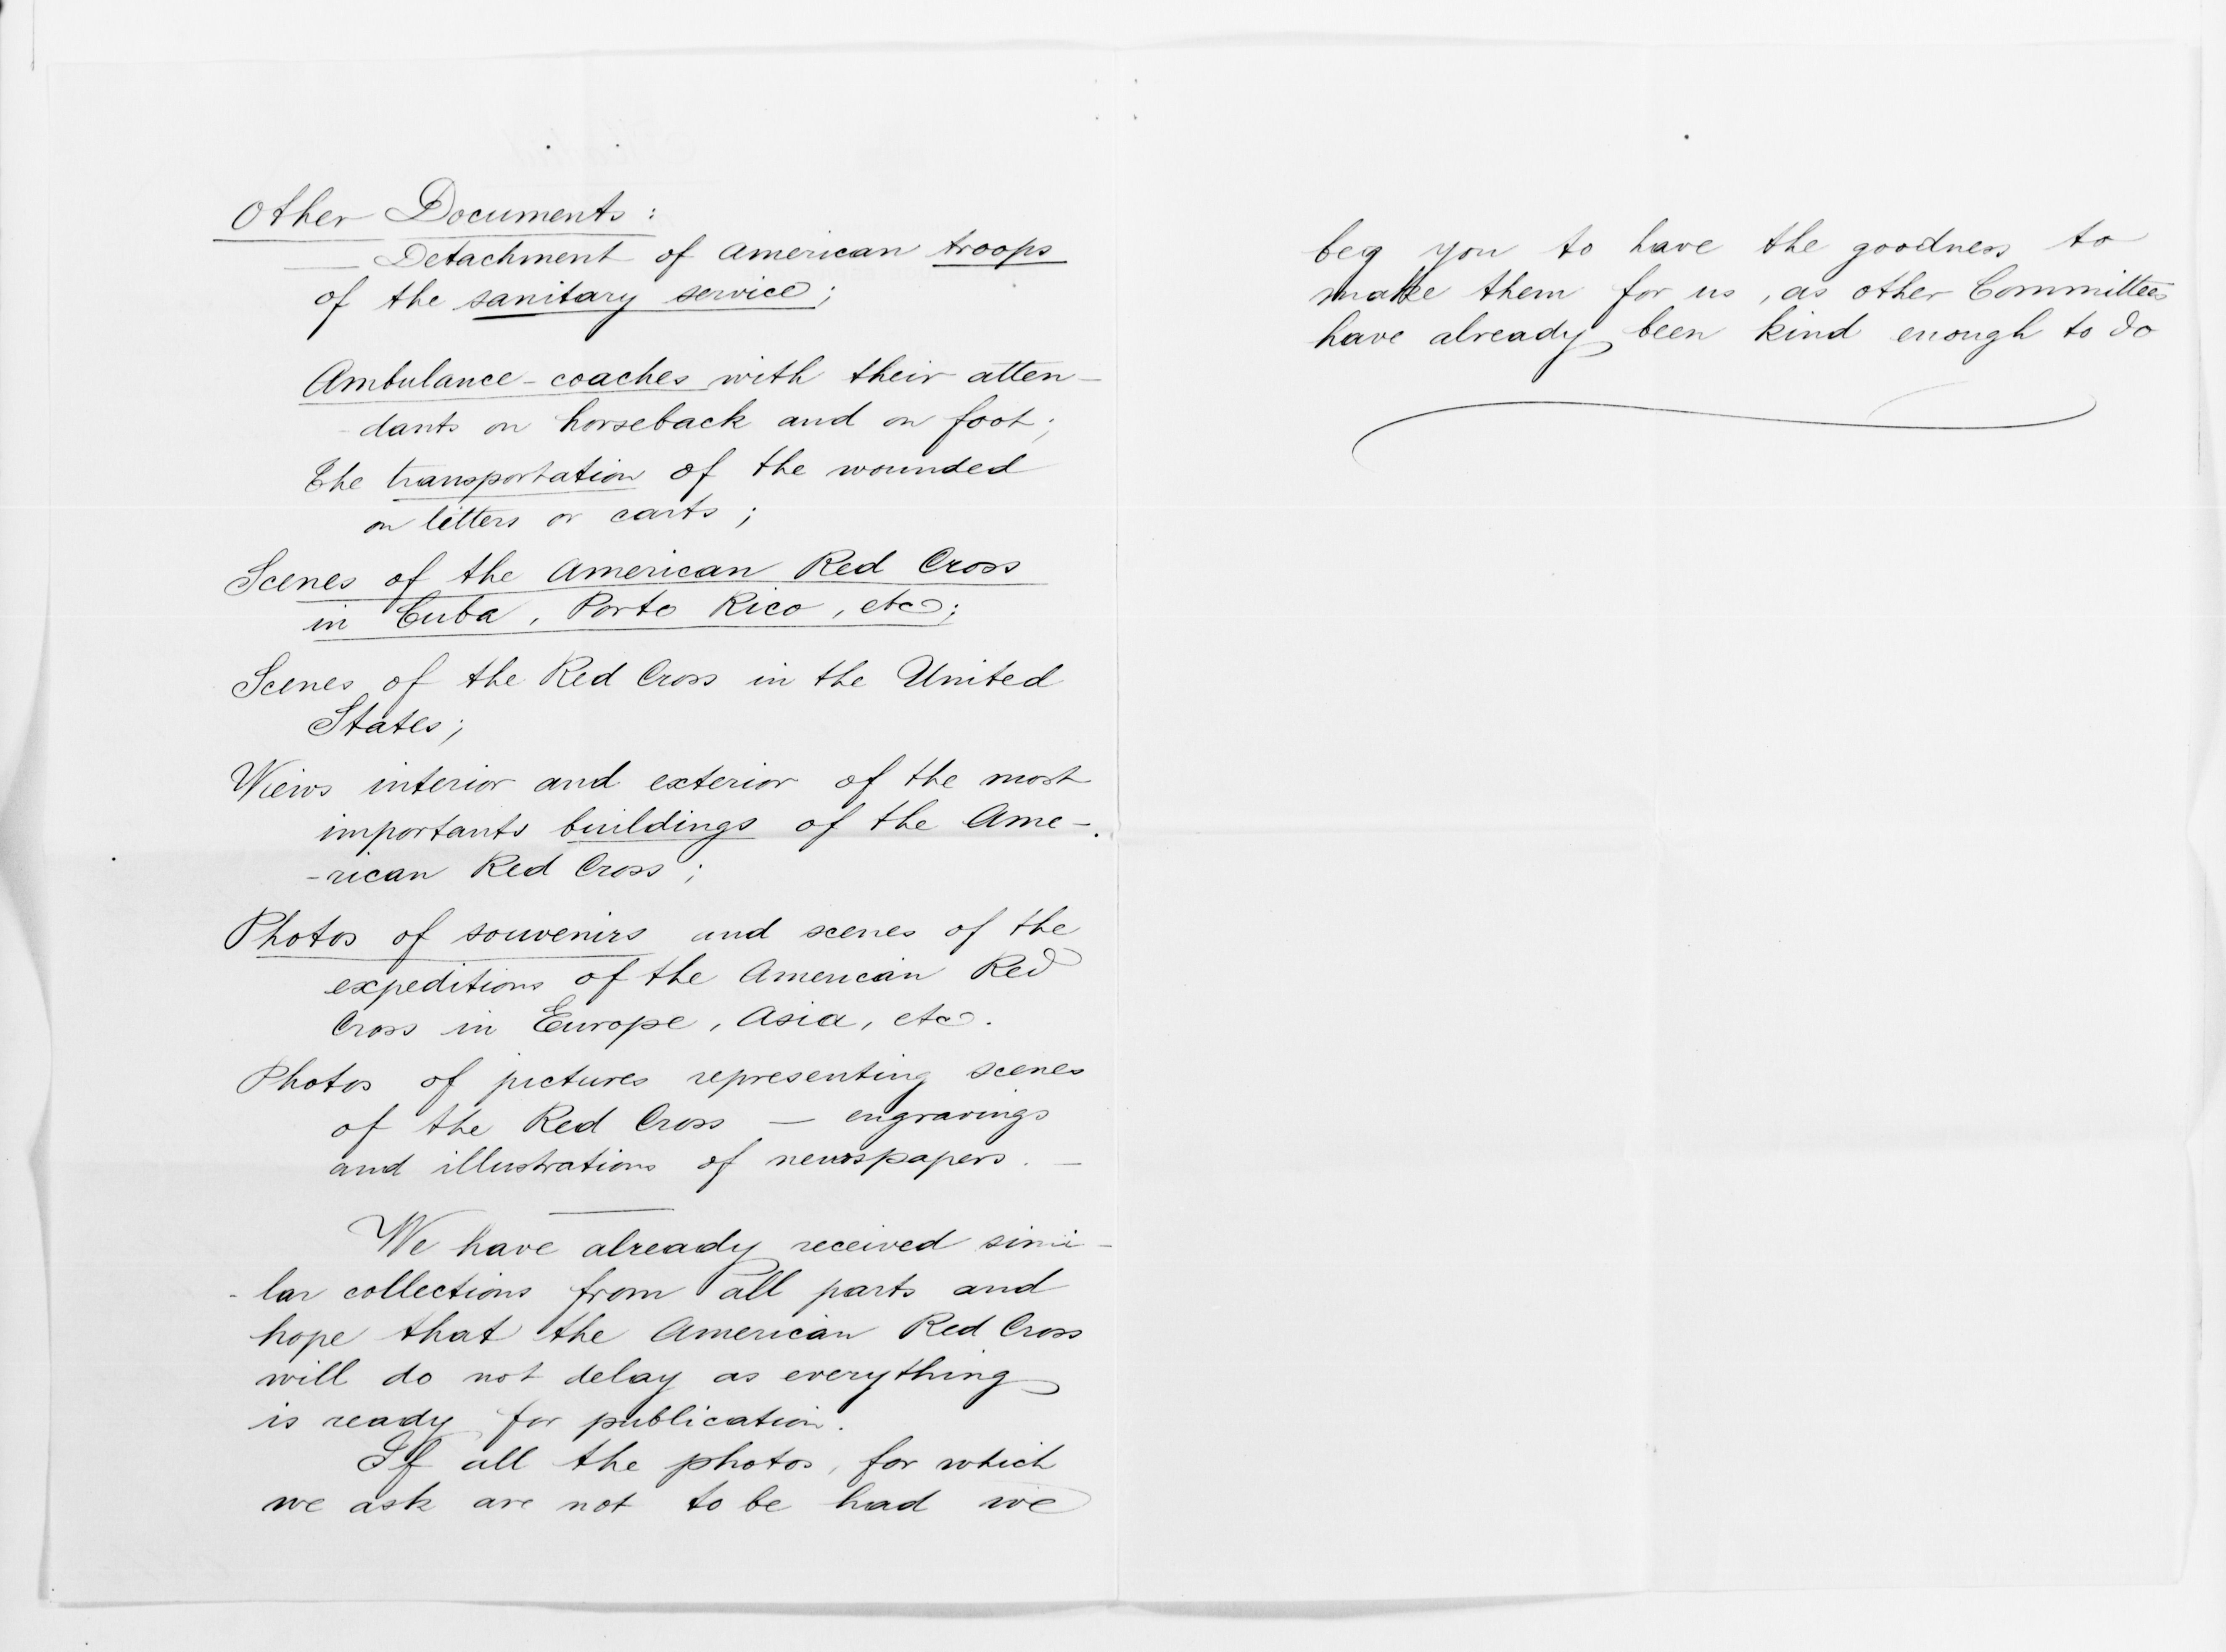 Other Documents:
— Detachment of American troops
of the sanitary service;
Ambulance-coaches with their atten-
-dants on horseback and on foot;
The transportation of the wounded
on litters or carts;
Scenes of the American Red Cross
in Cuba, Porto Rico, etc;
Scenes of the Red Cross in the United
States;
Wiews interior and exterior of the most
importants buildings of the Ame-
-rican Red Cross;
Photos of souvenirs and scenes of the
expeditions of the American Red
Cross in Europe, Asia, etc.
Photos of pictures representing scenes
of the Red Cross — engravings
and illustrations of newspapers. —
We have already received simi-
-lar collections from all parts and
hope that the American Red Cross
will do not delay as everything
is ready for publication.
If all the photos, for which
we ask are not to be had we
beg you to have the goodness to
make them for us, as other Committees
have already been kind enough to do